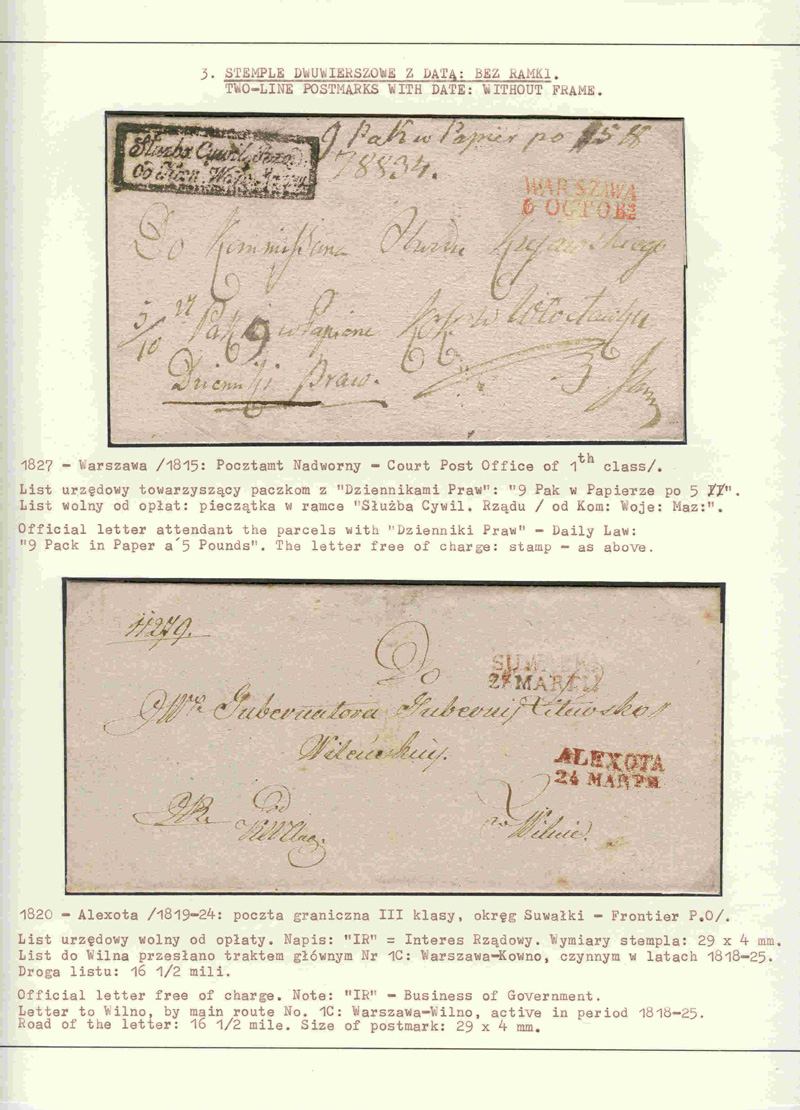 3. STEMPLE DWUWIERSZOWE Z DATĄ: BEZ RAMKI.
TWO-LINE POSTMARKS WITH DATE: WITHOUT FRAME.
Służba Cywil. Rząd.
od Kom. Woje.
9 Pak w Papier po
78834.
WARSZAWA
6 OCTOB
Do Kommissarza Obwodu Kujawskiego
5/10 27 Pak 9 w Papierze w Włocławku
Dzienniki Praw.
1827 - Warszawa /1815: Pocztamt Nadworny - Court Post Office of 1th class/.
List urzędowy towarzyszący paczkom z "Dziennikami Praw": "9 Pak w Papierze po 5 ".
List wolny od opłat: pieczątka w ramce "Służba Cywil. Rządu / od Kom: Woje: Maz:".
Official letter attendant the parcels with "Dzienniki Praw" - Daily Law:
"9 Pack in Paper a´5 Pounds". The letter free of charge: stamp - as above.
11279.
Do
SUWAŁKI
JWo Gubernatora Gubernij Litewsko
24 MAR
Wileńskiey.
ALEXOTA
24 MAR
IR. Pod
w Wilnie.
1820 - Alexota /1819-24: poczta graniczna III klasy, okręg Suwałki - Frontier P.O/.
List urzędowy wolny od opłaty. Napis: "IR" = Interes Rządowy. Wymiary stempla: 29 x 4 mm.
List do Wilna przesłano traktem głównym Nr 1C: Warszawa-Kowno, czynnym w latach 1818-25.
Droga listu: 16 1/2 mili.
Official letter free of charge. Note: "IR" - Business of Government.
Letter to Wilno, by main route No. 1C: Warszawa-Wilno, active in period 1818-25.
Road of the letter: 16 1/2 mile. Size of postmark: 29 x 4 mm.